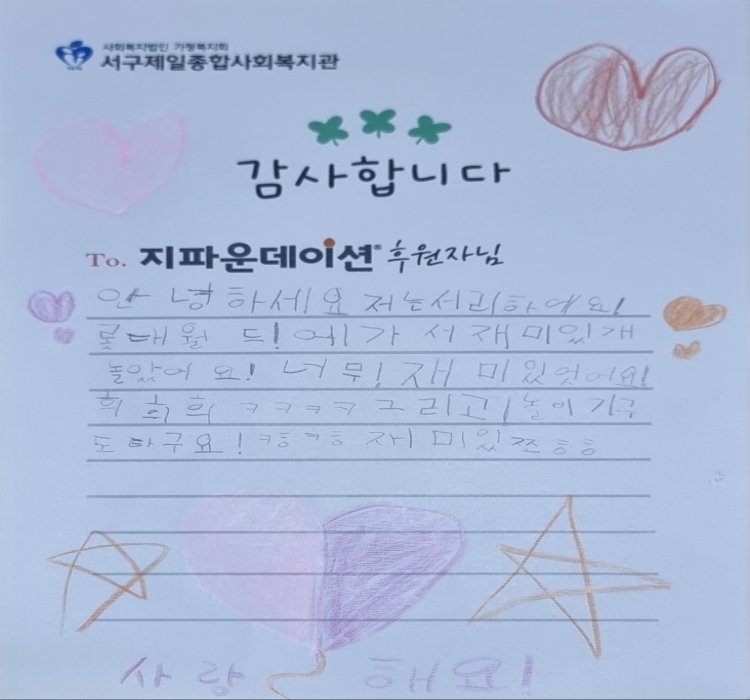 사회복지법인 가정복지회
서구제일종합사회복지관
감사합니다
To. 지파운데이션® 후원자님
안녕하세요 저는서리하예요!
롯대월드!에가서재미있개
놀았어요! 너무! 재미있었어요!
희희희 ㅋㅋㅋㅋ 그리고, 놀이기구
도타구요! ㅋㅎㅋㅎ 재미있쯘ㅎㅎ
사랑해요!